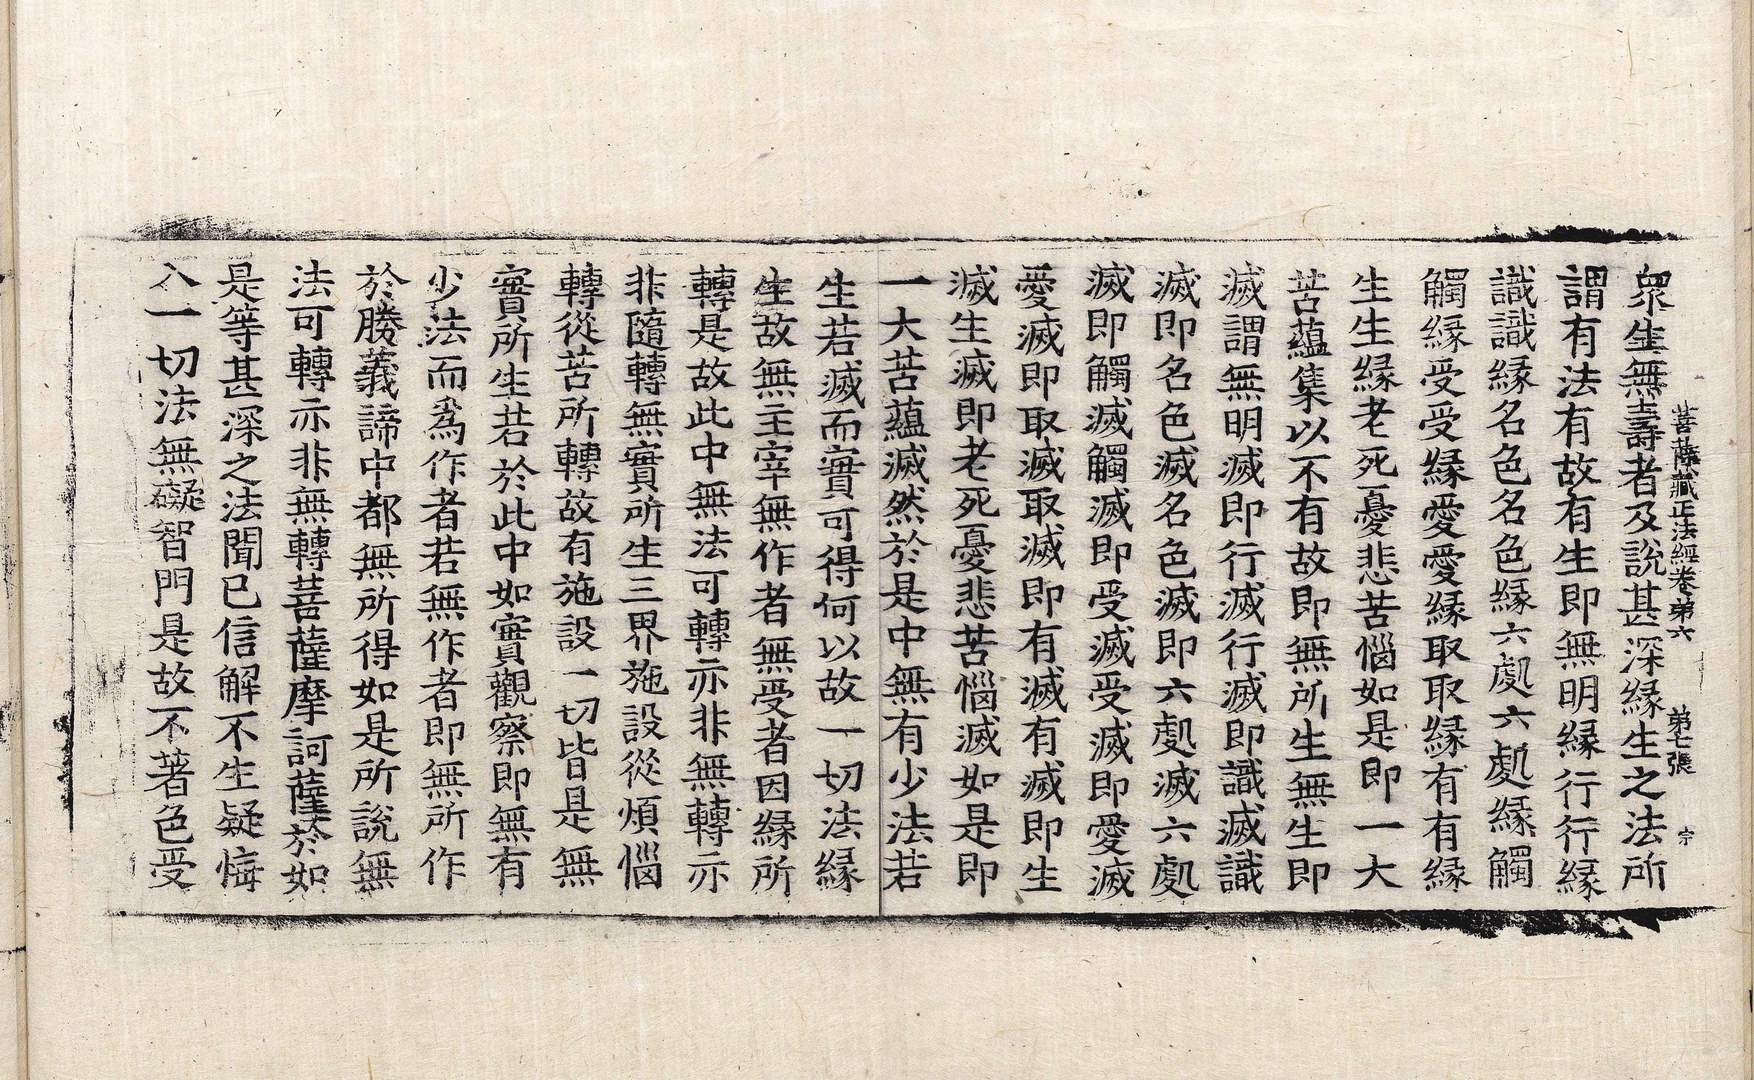 菩薩藏正法經卷第六　第七張　宗
衆生無壽者及説甚深縁生之法所
謂有法有故有生即無明縁行行縁
識識縁名色名色縁六處六處縁觸
觸縁受受縁愛愛縁取取縁有有縁
生生縁老死憂悲苦惱如是即一大
苦蘊集以不有故即無所生無生即
滅謂無明滅即行滅行滅即識滅識
滅即名色滅名色滅即六處滅六處
滅即觸滅觸滅即受滅受滅即愛滅
愛滅即取滅取滅即有滅有滅即生
滅生滅即老死憂悲苦惱滅如是即
一大苦蘊滅然於是中無有少法若
生若滅而實可得何以故一切法縁
生故無主宰無作者無受者因縁所
轉是故此中無法可轉亦非無轉亦
非隨轉無實所生三界施設從煩惱
轉從苦所轉故有施設一切皆是無
實所生若於此中如實觀察即無有
少法而爲作者若無作者即無所作
於勝義諦中都無所得如是所說無
法可轉亦非無轉菩薩摩訶薩於如
是等甚深之法聞已信解不生疑悔
入一切法無礙智門是故不著色受